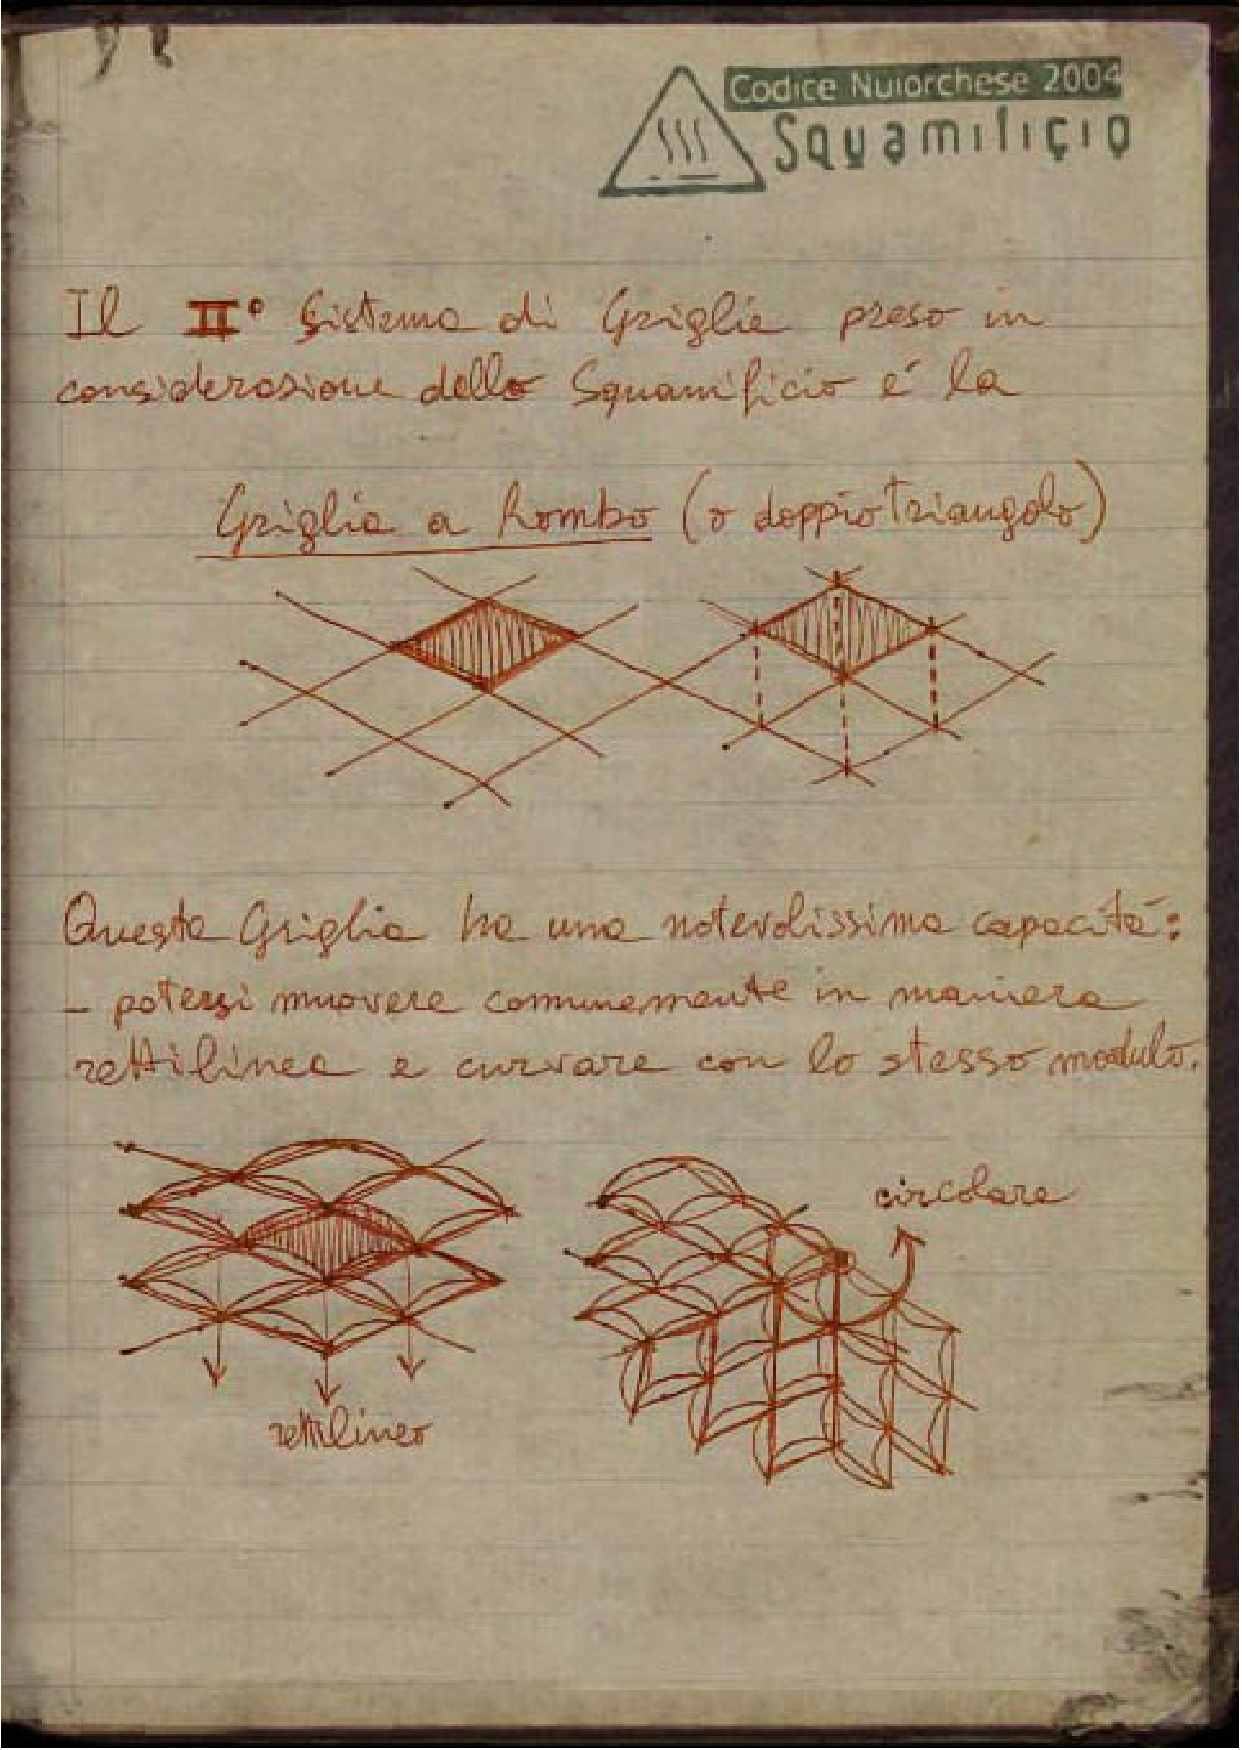 Codice Nuiorchese 2004
Squamificio
Il II° Sistema di Griglie preso in
considerazione dello Squamificio é la
Griglia a Rombo (o doppio Triangolo)
Questa Griglia ha una notevolissima capacitá:
- potersi muovere comunemente in maniera
rettilinea e curvare con lo stesso modulo.
circolare
rettilineo